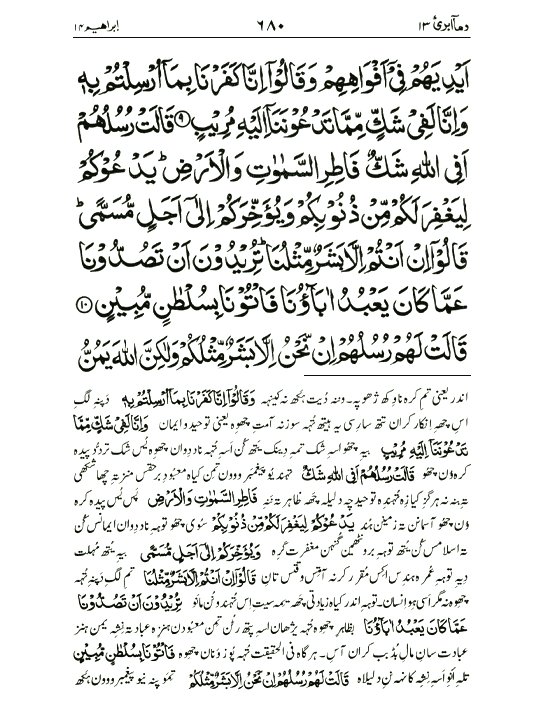 ابراهيم ١٤ ٦٨٠ وما أبرئ ١٣
اَيْدِيَهُمْ فِيْٓ اَفْوَاهِهِمْ وَقَالُوْٓا اِنَّا كَفَرْنَا بِمَآ اُرْسِلْتُمْ بِهٖ
وَاِنَّا لَفِيْ شَكٍّ مِّمَّا تَدْعُوْنَنَآ اِلَيْهِ مُرِيْبٍ ۹ قَالَتْ رُسُلُهُمْ
اَفِي اللّٰهِ شَكٌّ فَاطِرِ السَّمٰوٰتِ وَالْاَرْضِ ؕ يَدْعُوْكُمْ
لِيَغْفِرَ لَكُمْ مِّنْ ذُنُوْبِكُمْ وَيُؤَخِّرَكُمْ اِلٰٓى اَجَلٍ مُّسَمًّى ؕ
قَالُوْٓا اِنْ اَنْتُمْ اِلَّا بَشَرٌ مِّثْلُنَا ؕ تُرِيْدُوْنَ اَنْ تَصُدُّوْنَا
عَمَّا كَانَ يَعْبُدُ اٰبَآؤُنَا فَاْتُوْنَا بِسُلْطٰنٍ مُّبِيْنٍ ۱۰
قَالَتْ لَهُمْ رُسُلُهُمْ اِنْ نَّحْنُ اِلَّا بَشَرٌ مِّثْلُكُمْ وَلٰكِنَّ اللّٰهَ يَمُنُّ
اندر یعنی تم کرہ ناوکھ ژھوپہ۔ ونہ وَقَالُوْٓا اِنَّا كَفَرْنَا بِمَآ اُرْسِلْتُمْ بِهٖ دپنہ لگ
اس چھہ انکار کران تتھ ساری یہ ہیتھ تہہ سوزنہ آمت چھوہ یعنی توحید و ایمان وَاِنَّا لَفِيْ شَكٍّ مِّمَّا
تَدْعُوْنَنَآ اِلَيْهِ مُرِيْبٍ بیہ چھو اسہ شک تمہ دینک یتھ کن اسہ تہہ ناد دوان چھوہ یس شک تردد پیدہ
کرون چھو قَالَتْ رُسُلُهُمْ اَفِي اللّٰهِ شَكٌّ تہند یو پیغمبر وون تمن کیاہ معبود برحقس منز تہ چھا شکھی
تہ بنہ نہ ہرگز کیازہ تہندہ توحید چہ دلیلہ چھہ ظاہر تہ ننہ فَاطِرِ السَّمٰوٰتِ وَالْاَرْضِ پس یس پیدہ کرہ
ون چھو آسمانن تہ زمین ہند يَدْعُوْكُمْ لِيَغْفِرَ لَكُمْ مِّنْ ذُنُوْبِكُمْ سوی چھو توہہ ناد دوان ایمانس کن
تہ اسلامس کن یتھ توہہ برونٹھمین گنہن مغفرت کرہ وَيُؤَخِّرَكُمْ اِلٰٓى اَجَلٍ مُّسَمًّى بیہ یتھ مہلت
دیہ توہہ عمرہ ہندس اکس مقرر کرنہ آمتس وقتس تان قَالُوْٓا اِنْ اَنْتُمْ اِلَّا بَشَرٌ مِّثْلُنَا تم لگ دپنہ تہہ
چھوہ نہ مگر اسی ہیو انسان۔ توہہ اندر کیاہ زیادتی چھہ یمہ سیت اس تہند ون مانو تُرِيْدُوْنَ اَنْ تَصُدُّوْنَا
عَمَّا كَانَ يَعْبُدُ اٰبَآؤُنَا بظاہر چھوہ تہہ یژھان اسہ پتھ رٹن تمن معبودن ہنزہ عبادتہ نشہ یمن ہنز
عبادت سان مال بڈبب کران آس۔ ہرگاہ فی الحقیقت تہہ پوز ونان چھوہ فَاْتُوْنَا بِسُلْطٰنٍ مُّبِيْنٍ
تلہ انو اسہ نشہ کانہہ نن دلیلاہ قَالَتْ لَهُمْ رُسُلُهُمْ اِنْ نَّحْنُ اِلَّا بَشَرٌ مِّثْلُكُمْ تمو پنہ نیو پیغمبرو وون